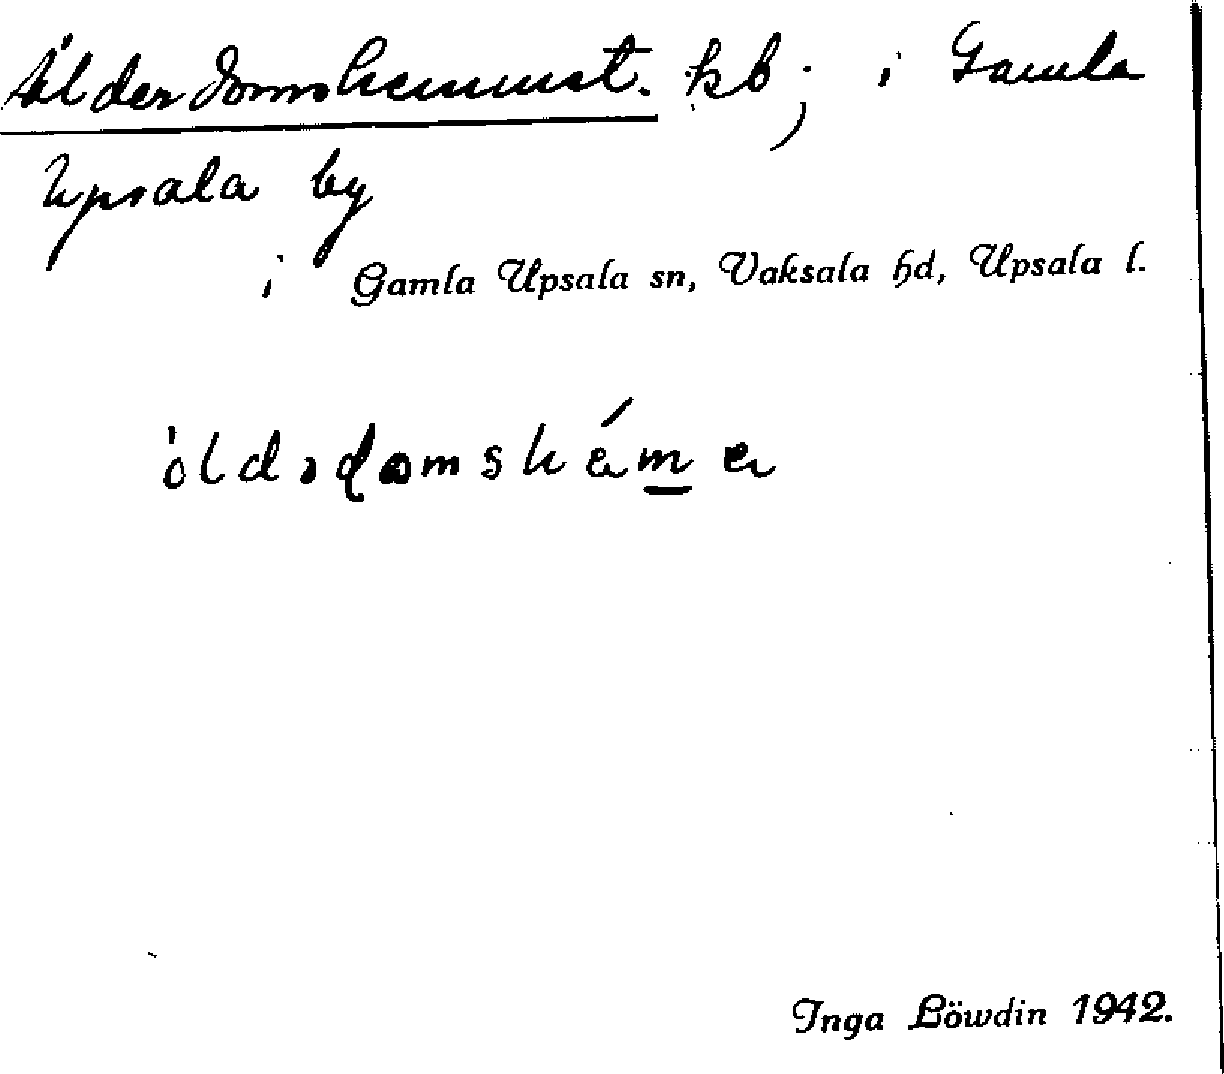 Ålderdomshemmet. kb; i Gamla
Upsala by
i Gamla Upsala sn, Vaksala hd, Upsala l.
Inga Löwdin 1942.